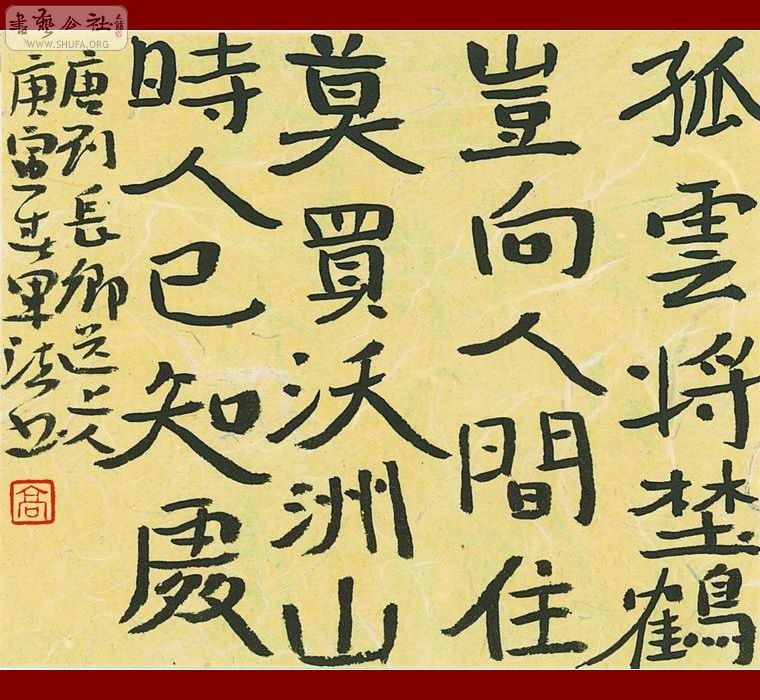 書藝公社
WWW.SHUFA.ORG
孤雲将埜鶴
豈向人間住
莫買沃洲山
時人已知處
唐刘長卿送上人
庚寅軍法书